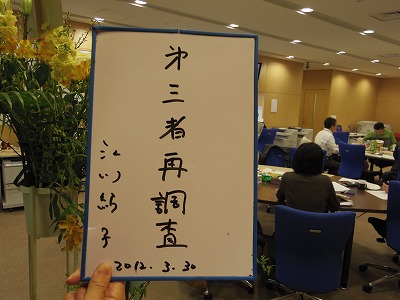 第三者再調査
江川紹子
2012.3.30